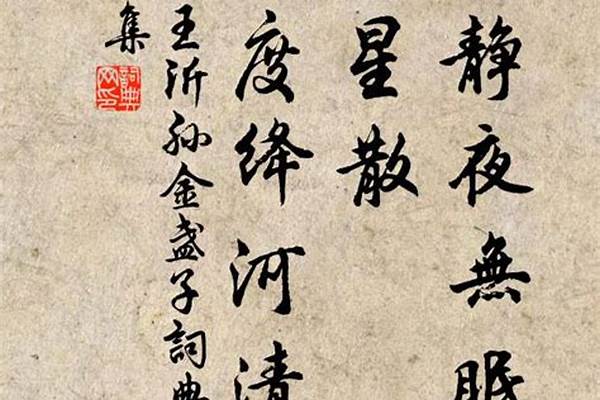 静夜無眠
星散
度绛河清
王沂孙金盏子詞典
集
詞典网印